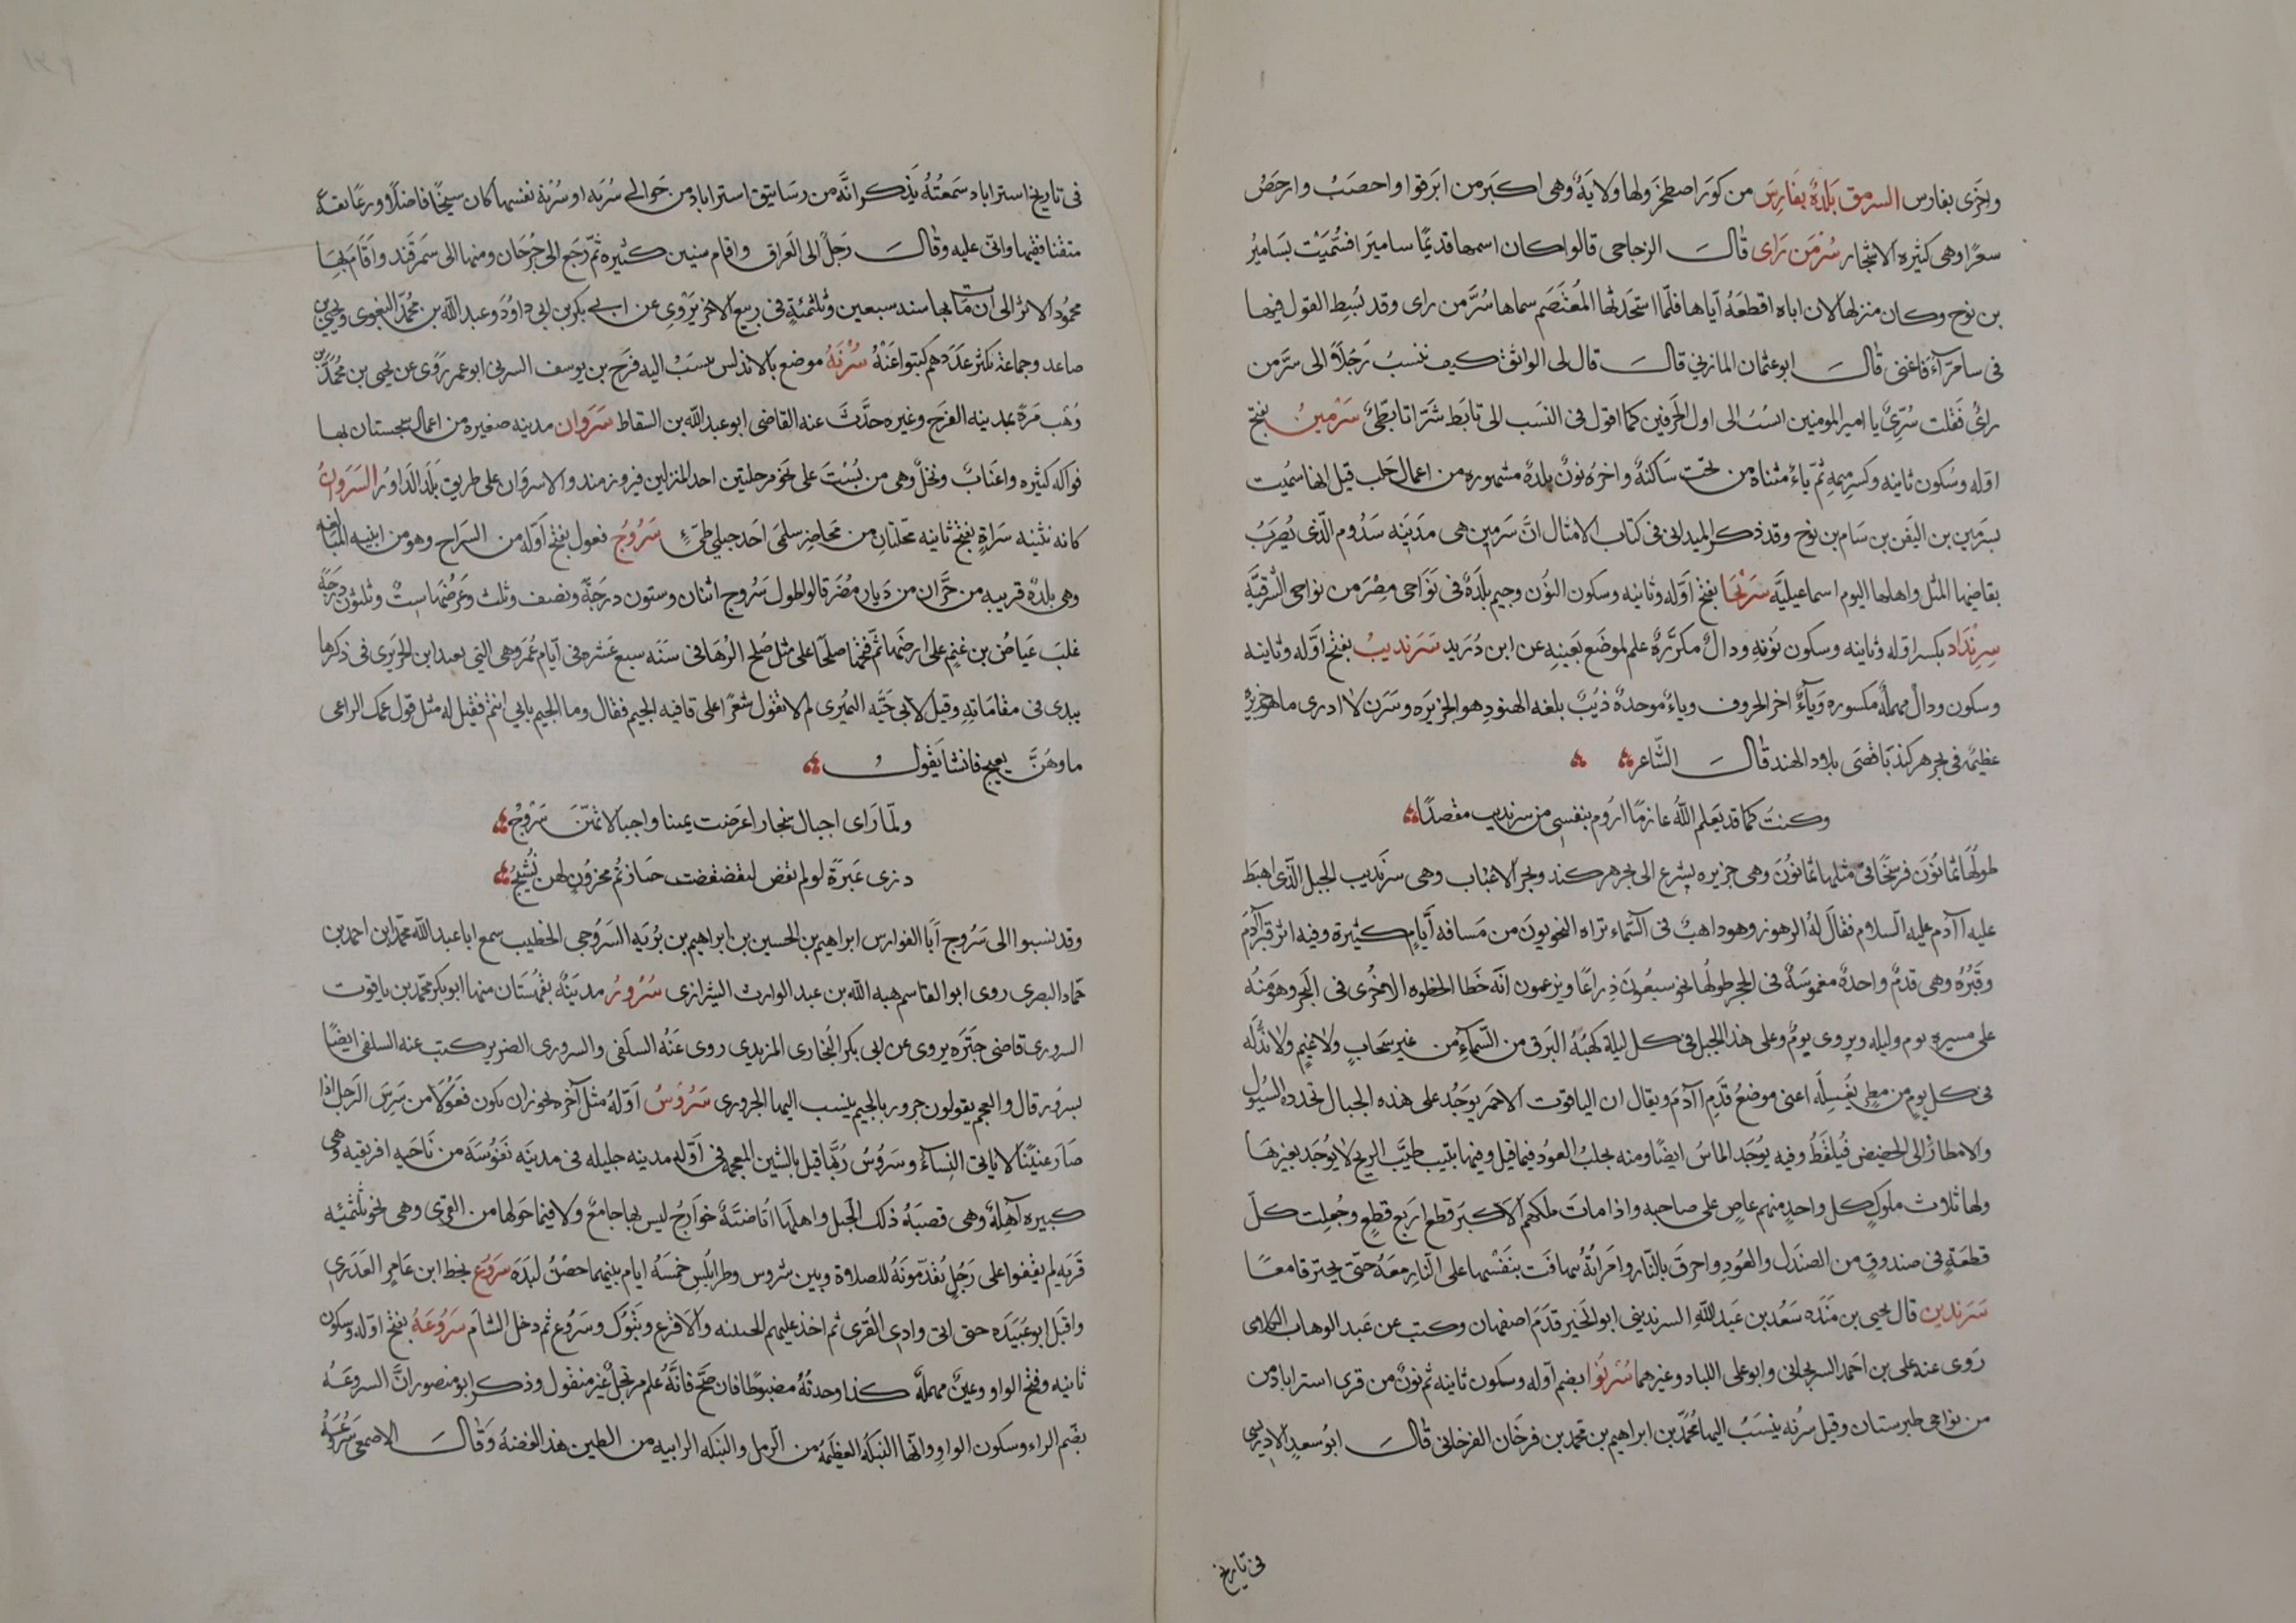 واخرى بفارس السرمق بلدة بفارس من كور اصطخر ولها ولاية وهى اكبر من ابرقوا واخصب وارخص
سعرا وهى كثيرة الاشجار سر من راى قال الزجاجى قالوا كان اسمها قديما ساميرا فسميت بسامير
بن نوح وكان منزلها لان اباه اقطعه اياها فلما استحدثها المعتصم سماها سر من راى وقد بسط القول فيها
فى سامراء فاغنى قال ابو عثمان المازنى قال قال لى الواثق كيف ننسب رجلا الى سر من
راى فقلت سرى يا امير المومنين انسب الى اول الحرفين كما اقول فى النسب الى تابط شرا تابطى سرمين بفتح
اوله وسكون ثانيه وكسر ميمه ثم ياء مثناه من تحت ساكنة واخره نون بلدة مشهوره من اعمال حلب قيل انها سميت
بسرمين بن اليفن بن سام بن نوح وقد ذكر الميدانى فى كتاب الامثال ان سرمين هى مدينه سدوم الذى يضرب
بقاضيها المثل واهلها اليوم اسماعيلية سرنجا بفتح اوله وثانيه وسكون النون وجيم بلدة فى نواحى مصر من نواحى الشرقية
سرنداد بكسر اوله وثانيه وسكون نونه ودال مكررة علم لموضع بعينه عن ابن دريد سرنديب بفتح اوله وثانيه
وسكون ودال مهملة مكسوره وياء اخر الحروف وباء موحدة ذيب بلغه الهنود هو الجزيره وسرن لا ادرى ما هو جزيرة
عظيمة فى بحر هركند باقصى بلاد الهند قال الشاعر
وكنت كما قد يعلم الله عازما اروم بنفسى من سرنديب مقصدا
طولها ثمانون فرسخا فى مثلها ثمانون وهى جزيره يشرع الى بحر هركند وبحر الاغباب وهى سرنديب الجبل الذى اهبط
عليه اآدم عليه السلام فقال له الرهون وهو داهب فى السماء تراه البحريون من مسافه ايام كثيرة وفيه اثر قدم آدم
وقبره وهى قدم واحدة مغموسة فى الحجر طولها نحو سبعون ذراعا ويزعمون انه خطا الخطوه الاخرى فى البحر وهو منه
على مسيره يوم وليله ويروى يوم وعلى هذا الجبل فى كل ليلة كهبة البرق من السماء من غير سحاب ولا غيم ولا بد له
فى كل يوم من مطر يغسله اعنى موضع قدم اآدم ويقال ان الياقوت الاحمر يوجد على هذه الجبال تحدده السيول
والامطار الى الحضيض فيلقط وفيه يوجد الماس ايضا ومنه يجلب العود فيما قيل وفيها نبت طيب الريح لا يوجد بغيرها
ولها ثلاث ملوك كل واحد منهم عاص على صاحبه واذا مات ملكهم الاكبر قطع اربع قطع وجعلت كل
قطعة فى صندوق من الصندل والعود واحرق بالنار وامراته تتهافت بنفسها على النار معه حتى يحترقا معا
سرندين قال يحيى بن منده سعد بن عبد الله السرندينى ابو الخير قدم اصفهان وكتب عن عبد الوهاب الكلابى
روى عنه على بن احمد السرنجانى وابو على اللباد وغيرهما سرنوا بضم اوله وسكون ثانيه ثم نون من قرى استراباد من
من نواحى طبرستان وقيل سرنه ينسب اليها محمد بن ابراهيم بن محمد بن فرخان الفرخانى قال ابو سعد الادريسى
فى تاريخ
فى تاريخ استراباد سمعته يذكر انه من رساتيق استراباد من حوالى سرنه او سرنة نفسها كان شيخا فاضلا ورعا ثقة
متقنا فقيها واثنى عليه وقال رحل الى العراق واقام سنين كثيره ثم رجع الى جرجان ومنها الى سمرقند واقام بها
محمود الاثر الى ان مات بها سنه سبعين وثلثمئة فى ربيع الاخر يروى عن ابى بكر بن ابى داود وعبد الله بن محمد البغوى ويحيى بن
صاعد وجماعة يكثر عددهم كتبوا عنه سرنة موضع بالاندلس ينسب اليه فرج بن يوسف السرنى ابو عمر روى عن يحيى بن محمد بن
وهب مرة بمدينه الفرج وغيره حدث عنه القاضى ابو عبد الله بن السقاط سروان مدينه صغيره من اعمال سجستان بها
فواكه كثيره واعناب ونخل وهى من بست على نحو مرحلتين احد المنزلين فيروزمند والاسروان على طريق بلد الداور السروان
كانه تثنيه سراة بفتح ثانيه محلتان من محاضر سلمى احد جبلى طىء سروج فعول بفتح اوله من السراج وهو من ابنيه المبالغه
وهى بلدة قريبه من حران من ديار مضر قالوا طول سروج اثنان وستون درجة ونصف وثلث وعرضها ست وثلثون درجة
غلب عياض بن غنم على ارضها ثم فتحها صلحا على مثل صلح الرها فى سنه سبع عشره فى ايام عمر وهى التى يعيد ابن الحريرى فى ذكرها
يبدى فى مقاماته وقيل لابى حية النميرى لم لا تقول شعرا على قافيه الجيم فقال وما الجيم بابى انتم فقيل له مثل قول عمك الراعى
ماوهن يعيج فانشا يقول
ولما راى اجبال سنجار اعرضت يمينا واجبالا ثمن سروج
درى عبرة لو لم تفض لتقضقضت حيازيم محزون لهن نشيج
وقد نسبوا الى سروج ابا الفوارس ابراهيم بن الحسين بن ابراهيم بن بويه السروجى الخطيب سمع ابا عبد الله محمد ابن احمد بن
حماد البصرى روى ابو القاسم هبه الله بن عبد الوارث الشيرازى سرور مدينة بقهستان منها ابو بكر محمد بن ياقوت
السرورى قاضى جنزه يروى عن ابى بكر البخارى المزيدى روى عنه السلفى والسرورى الضرير كتب عنه السلفى ايضا
بسرور قال والعجم يقولون جرور بالجيم ينسب اليها الجرورى سروس اوله مثل آخره يجوز ان يكون فعولا من سرس الرجل اذا
صار عنينا لا ياتى النساء وسروس ربما قيل بالشين المعجمه فى اوله مدينه جليله فى مدينه نفوسه من ناحيه افريقيه وهى
كبيره آهلة وهى قصبة ذلك الجبل واهلها اباضية خوارج ليس بها جامع ولا فيما حولها من القرى وهى نحو ثلثمئه
قريه لم يتفقوا على رجل يقدمونه للصلاة وبين شروس وطرابلس خمسة ايام بينهما حصن لبده سروع بخط ابن عامر العدرى
واقبل ابو عبيده حتى اتى وادى القرى ثم اخذ عليهم والاقرع وتبوك وسروع ثم دخل الشام سروعة بفتح اوله وسكون
ثانيه وفتح الواو وعين مهملة كذا وجدته مضبوطا فان صح فانه علم مرتجل غير منقول وذكر ابو منصور ان السروعة
بضم الراء وسكون الواو وانها النبكه العظيمة من الرمل والنبكه الرابيه من الطين هذا لفضه وقال الاصمعى سروعة